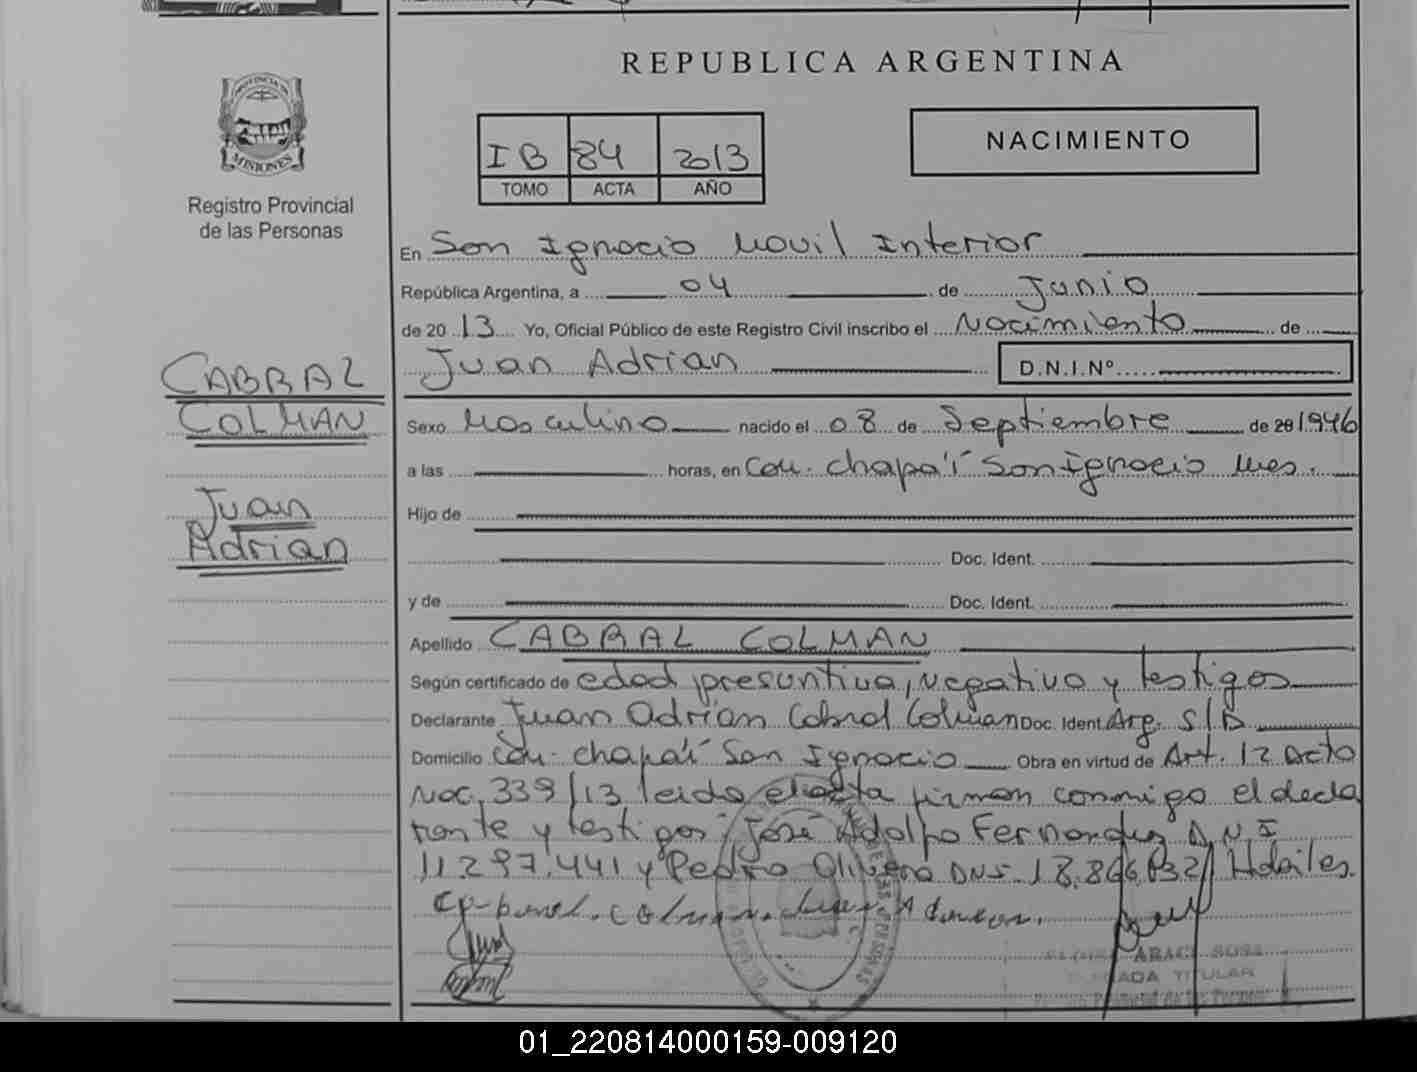 REPUBLICA ARGENTINA
PROVINCIA DE
MISIONES
Registro Provincial
de las Personas
IB 84 2013
TOMO ACTA AÑO
NACIMIENTO
En San Ignacio Movil Interior
República Argentina, a 04 de Junio
de 2013 Yo, Oficial Público de este Registro Civil inscribo el Nacimiento de
Juan Adrian D.N.I.Nº
CABRAL
COLMAN
Juan
Adrian
Sexo Masculino nacido el 08 de Septiembre de 20 1946
a las horas, en Com. chapa'i San Ignacio Mes.
Hijo de
Doc. Ident.
y de Doc. Ident.
Apellido CABRAL COLMAN
Según certificado de edad presuntiva, negativo y testigos
Declarante Juan Adrian Cabral Colman Doc. Ident. Arg. S/D
Domicilio Com. chapa'i San Ignacio Obra en virtud de Art. 12 Acto
Nac. 339/13 leida el acta firman conmigo el decla
rante y testigos: José Adolfo Fernandez D.N.I
11.297.441 y Pedro Olivera DNI. 18.866.832 Habiles.
colman
ARACI SOSA
TITULAR
01_220814000159-009120